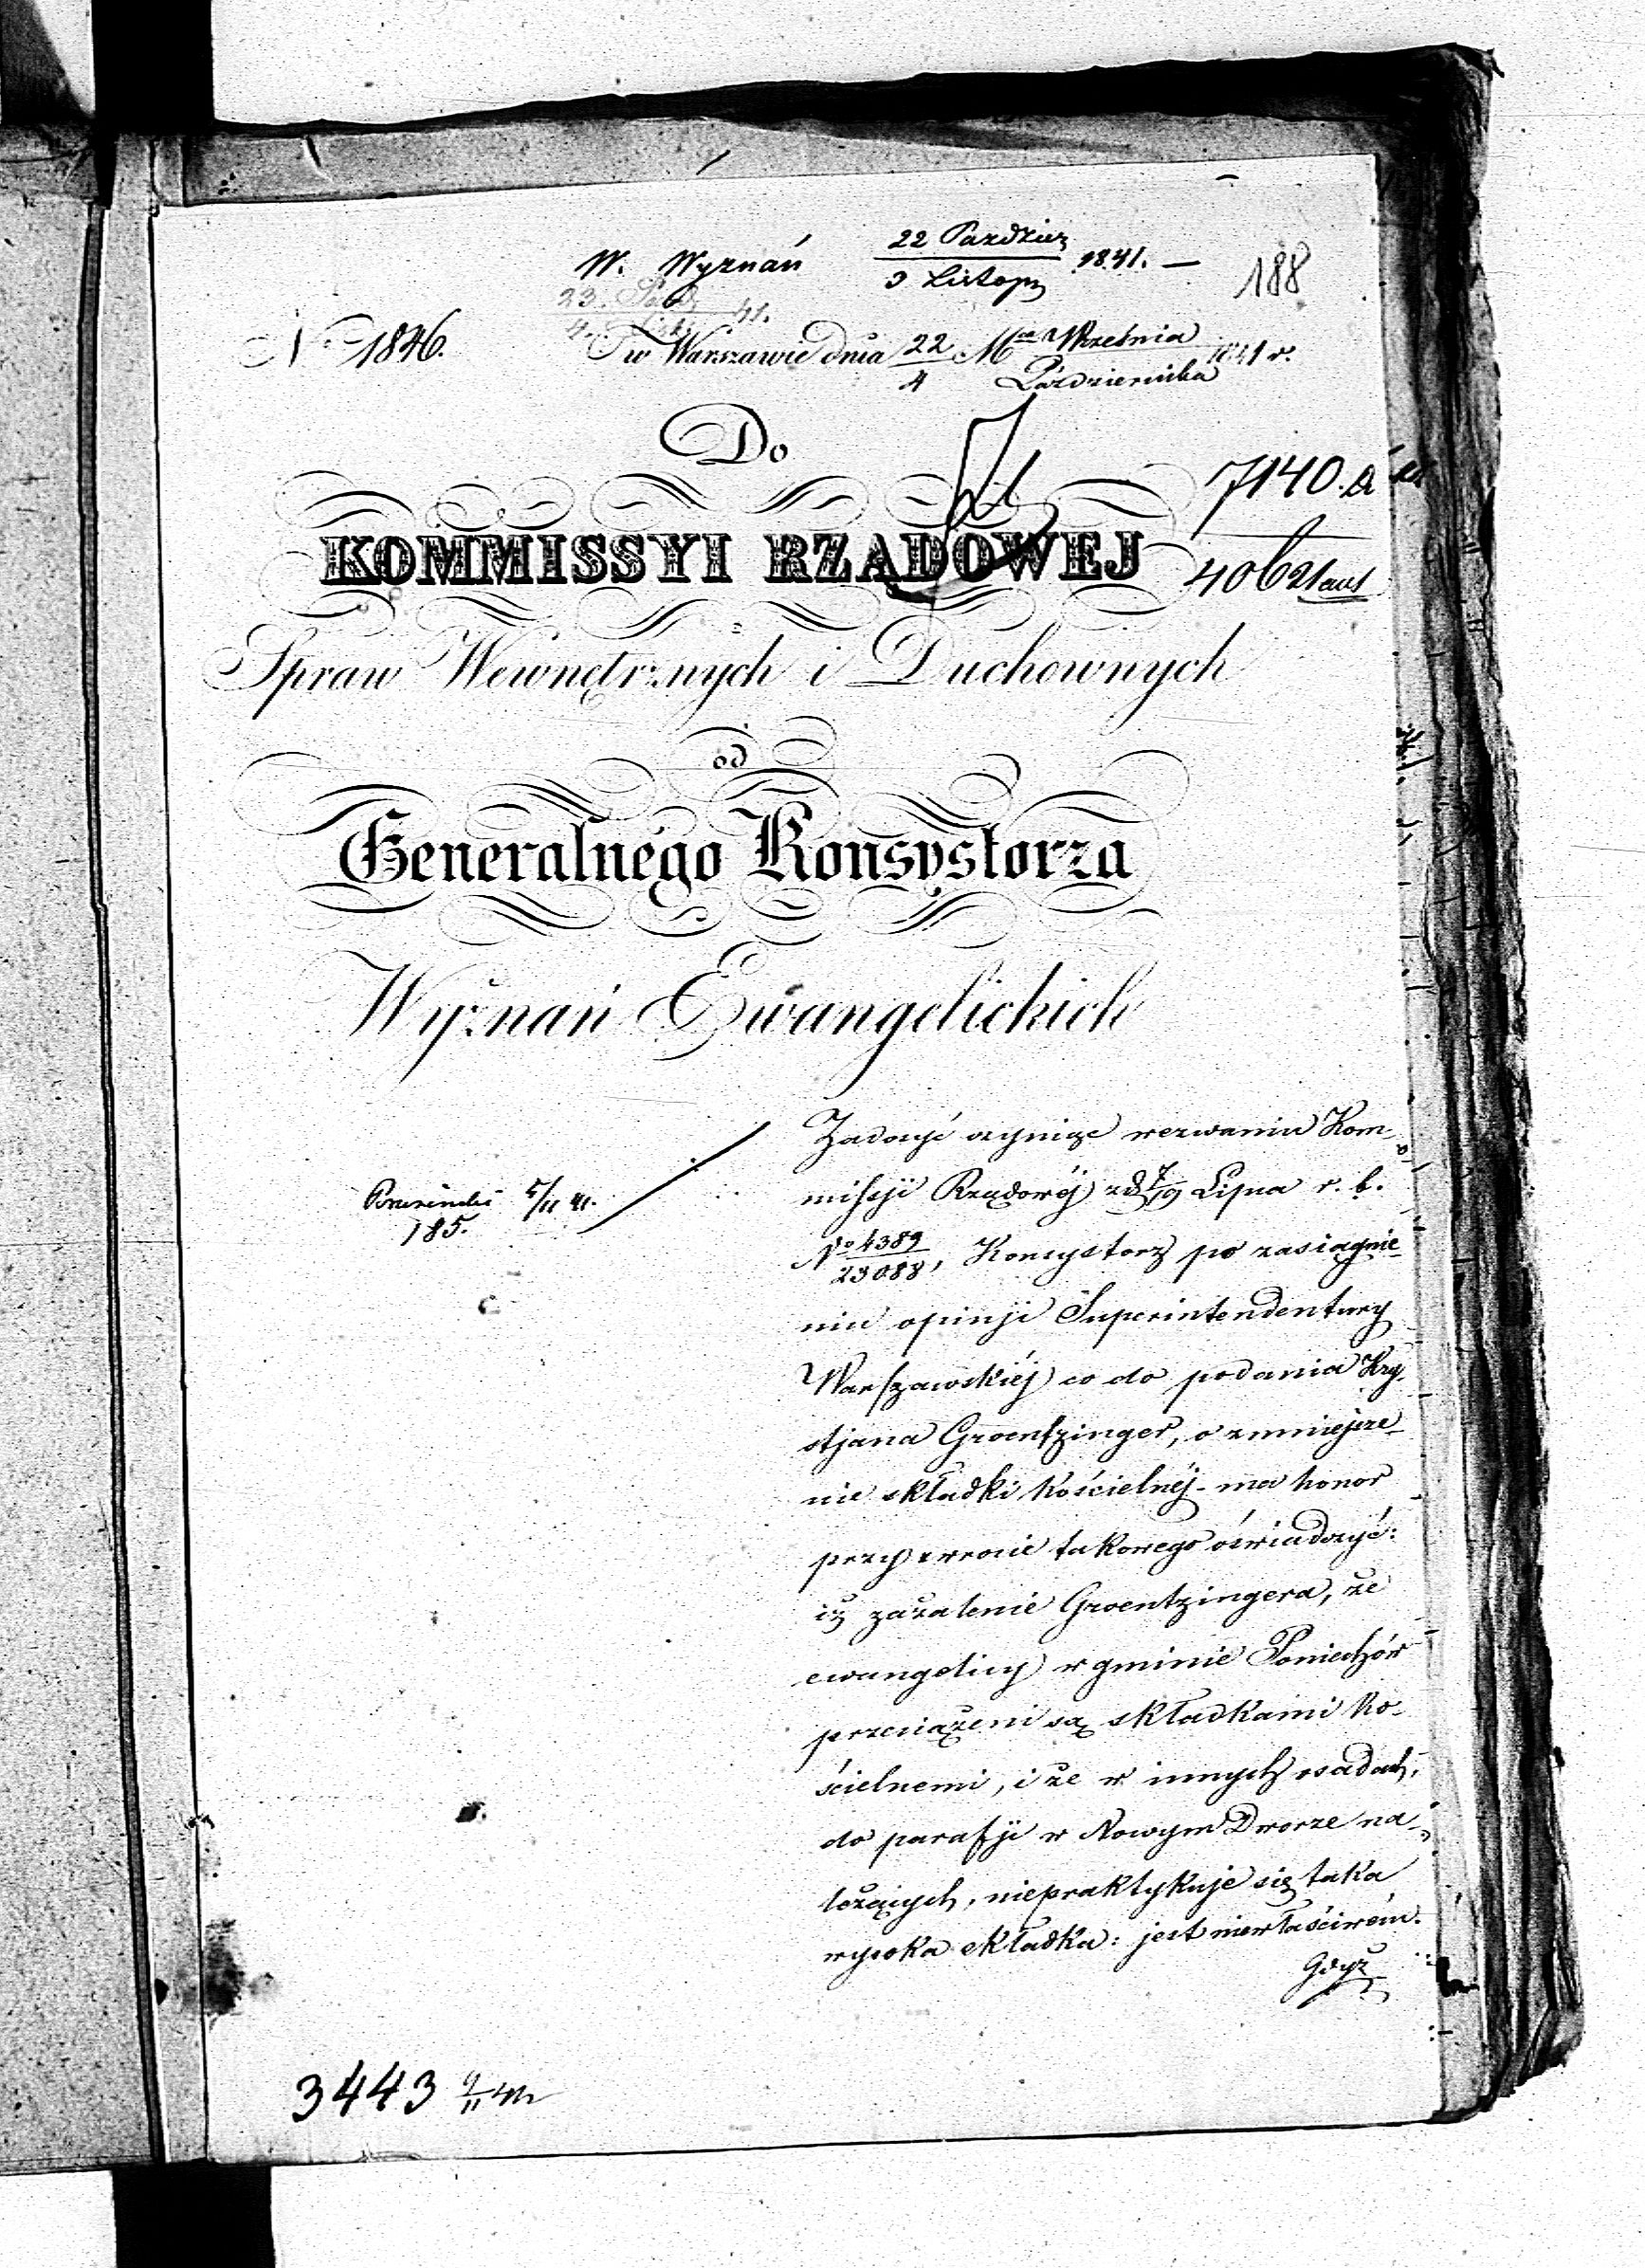 W. Wyznań 22 Paździer / 3 Listop 1841. —
188
N. 1846.
w Warszawie dnia 22/4 Mca Września / Października 1841 r.
Do
7140.
KOMMISSYI RZĄDOWEJ
Spraw Wewnętrznych i Duchownych
od
Generalnego Konsystorza
Wyznań Ewangelickich
Zadosyć czyniąc wezwaniu Kom-
missyi Rządowéj z d 7/19 Lipca r. b.
185.
No 4389/23088, Konsystorz po zasiągnie-
niu opinji Superintendentury
Warszawskiéj co do podania Kry-
stjana Groentzinger, o zmniejsze-
nie składki kościelnéj - ma honor
przy zwrocie takowego oświadczyć:
iż zażalenie Groentzingera, że
ewangelicy w gminie Poniechów
przeciążeni są składkami ko-
ścielnemi, i że w innych osadach,
do parafji w Nowym Dworze na-
leżących, niepraktykuje się taka
wysoka składka: jest niewłaściwém.
Gdyż
3443